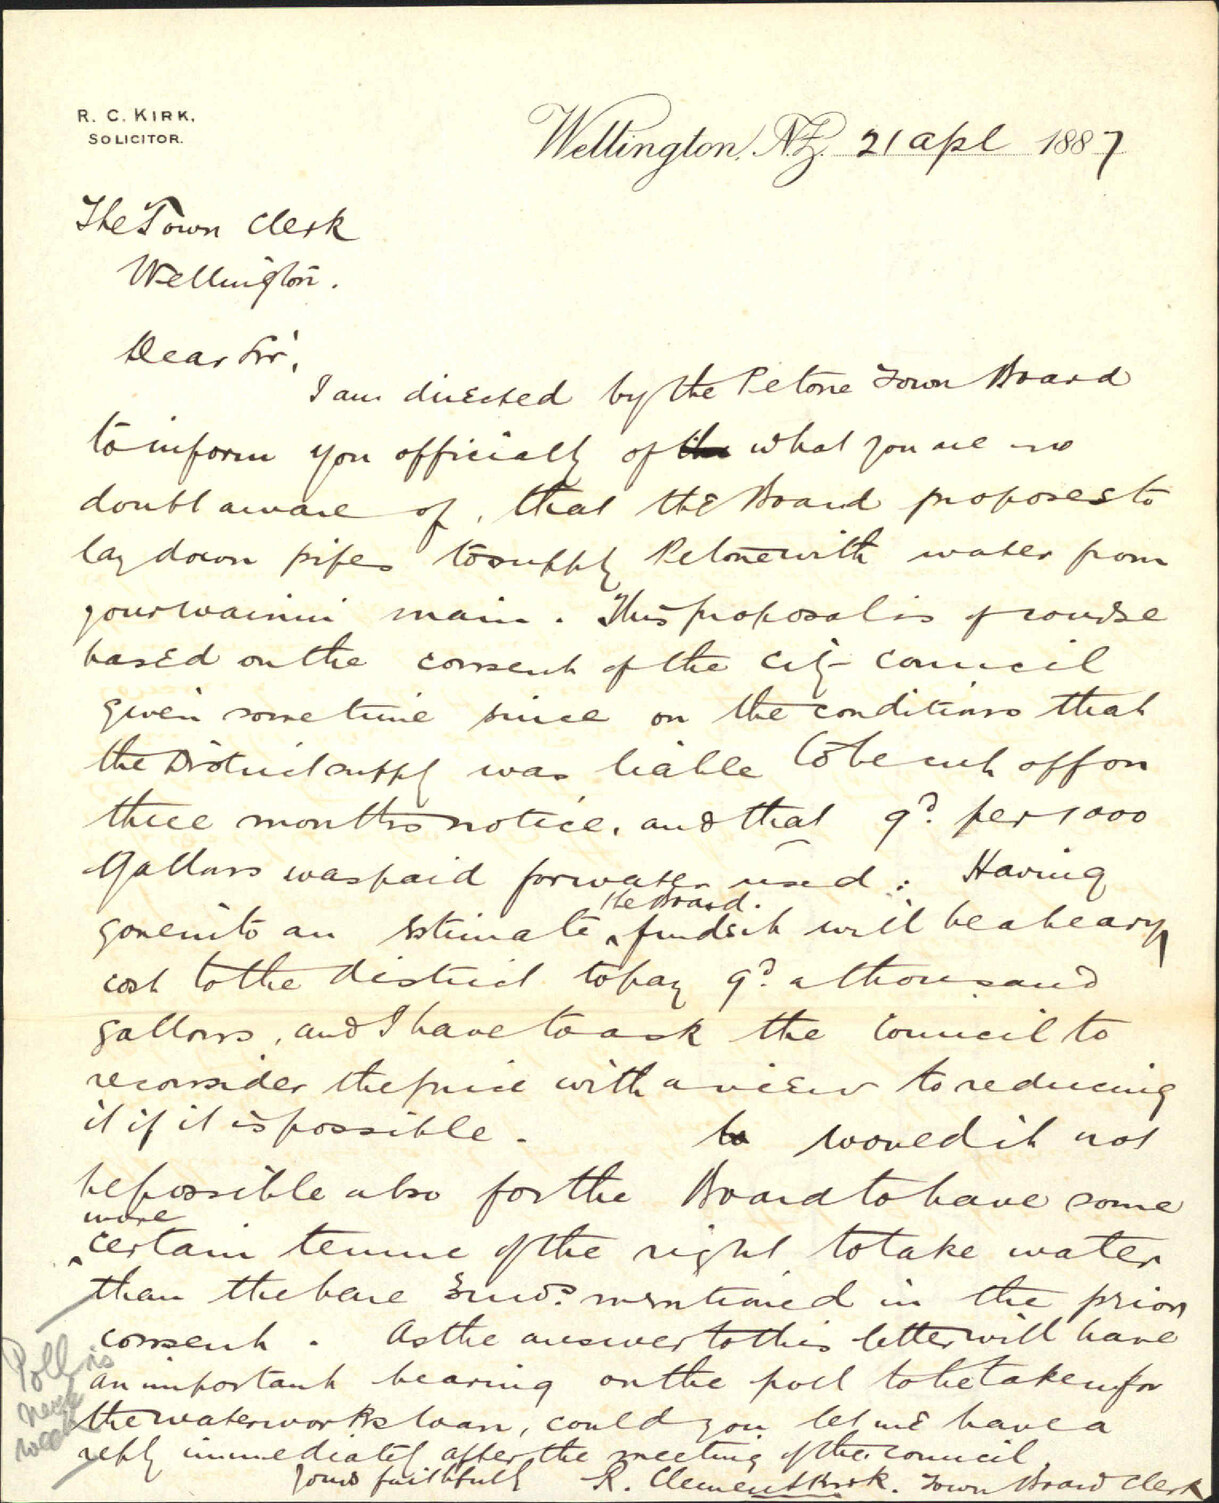 R. C. KIRK.
SOLICITOR.
Wellington, N.Z. 21 apl 1887
The Town Clerk
Wellington.
Dear Sir,
I am directed by the Petone Town Board
to inform you officially of the what you are no
doubt aware of, that the Board proposes to
lay down pipes to supply Petone with water from
your wainui main. This proposal is of course
based on the consent of the City Council
given sometime since on the conditions that
the District supply was liable to be cut off on
three months notice, and that 9d. per 1000
Gallons was paid for water used: Having
gone into an Estimate the Board. finds it will be a heavy
cost to the district to pay 9d. a thousand
gallons, and I have to ask the Council to
reconsider the price with a view to reducing
it if it is possible. would it not
be possible also for the Board to have some
more
certain tenure of the right to take water
than the bare 3 mos. mentioned in the prior
consent. As the answer to this letter will have
an important bearing on the poll to be taken for
the waterworks loan, could you let me have a
reply immediately after the meeting of the council
yours faithfully R. Clement Kirk. Town Board Clerk
Poll is
next
week